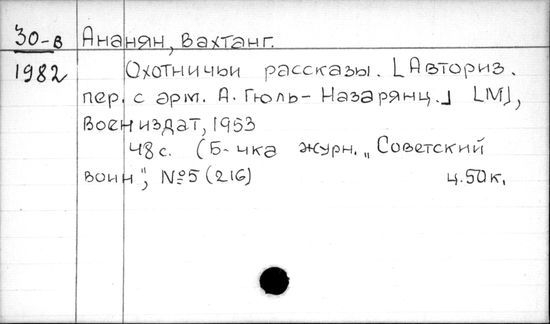 30-в Ананян, Вахтанг.
1982 Охотничьи рассказы. [Авториз.
пер. с арм. А. Гюль-Назарянц.] [М],
Воениздат, 1953
48 с. (Б-чка журн. „Советский
воин", №5 (216) ц. 50 к.